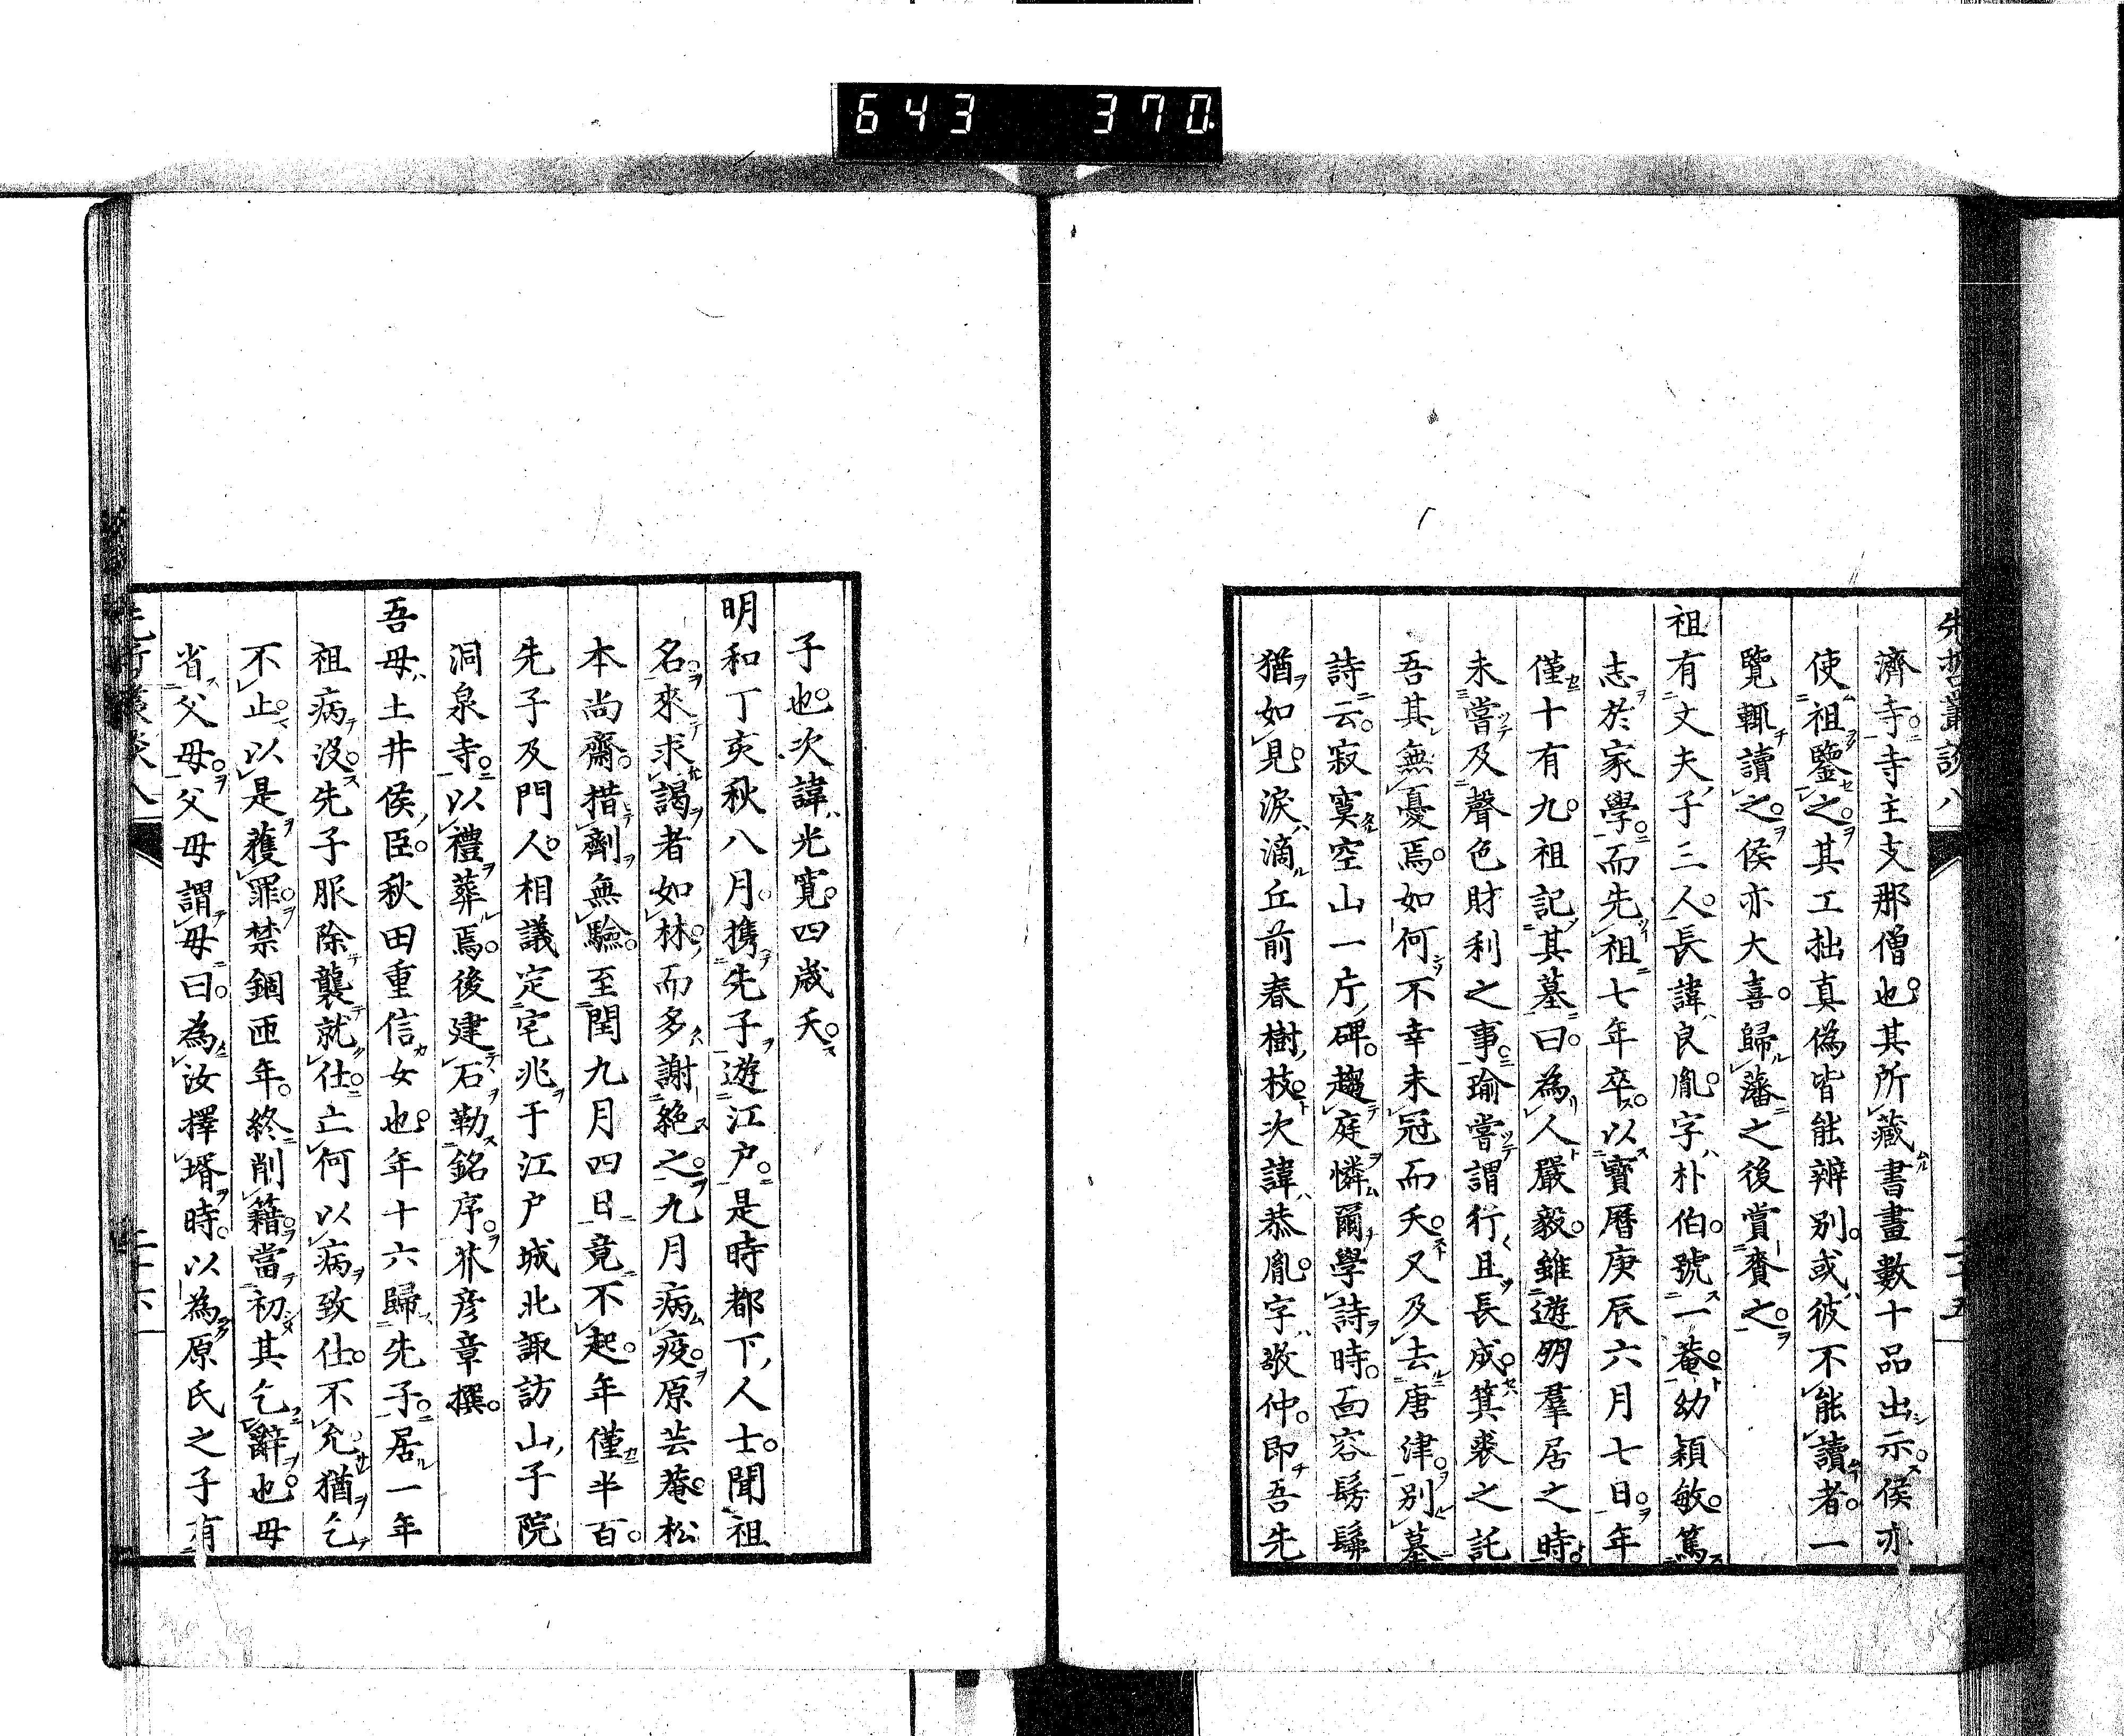 643 370
先哲叢談八
濟寺寺主支那僧也其所藏書畫數十品出示侯亦
使祖鑒之其工拙真僞皆能辨別或彼不能讀者一
覽輒讀之侯亦大喜歸藩之後賞賚之
祖有丈夫子三人長諱良胤字朴伯號一菴幼穎敏篤
志於家學而先祖七年卒以寶曆庚辰六月七日年
僅十有九祖記其墓曰為人嚴毅雖遊朋羣居之時
未嘗及聲色財利之事瑜嘗謂行且長成箕裘之託
吾其無憂焉如何不幸未冠而夭又及去唐津別墓
詩云寂寞空山一片碑趨庭憐爾學詩時面容髣髴
猶如見淚滴丘前春樹枝次諱恭胤字敬仲即吾先
子也次諱光寬四歲夭
明和丁亥秋八月携先子遊江戶是時都下人士聞祖
名來求謁者如林而多謝絕之九月病疫原芸菴松
本尚齋措劑無驗至閏九月四日竟不起年僅半百
先子及門人相議定宅兆于江戶城北諏訪山子院
洞泉寺以禮葬焉後建石勒銘序芥彥章撰
吾母土井侯臣秋田重信女也年十六歸先子居一年
祖病沒先子服除襲就仕亡何以病致仕不允猶乞
不止以是獲罪禁錮匝年終削籍當初其乞辭也母
省父母父母謂母曰為汝擇壻時以為原氏之子有